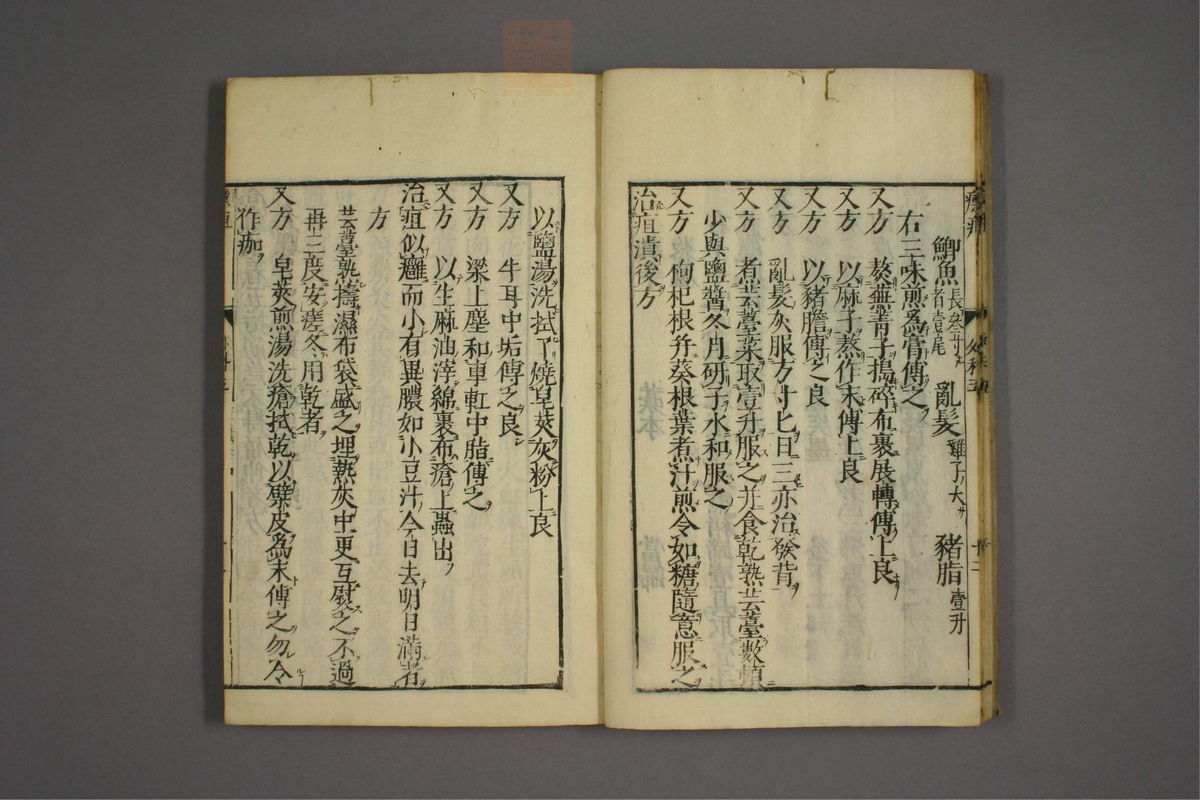 鯽魚長叁寸者壹尾 亂髮雞子ノ大サ 豬脂壹升
右三味煎爲膏傅之
又方 熬蕪菁子搗碎布裹展轉傅上良
又方 以麻子熬作末傅上良
又方 以豬膽傅之良
又方 亂髮灰服方寸匕日三亦治發背
又方 煮芸薹菜取壹升服之并食乾熟芸薹數頓
少與鹽醬冬月研子水和服之
又方 枸杞根并葵根葉煮汁煎令如糖隨意服之
治疽潰後方
以鹽湯洗拭了燒皂莢灰粉上良
又方 牛耳中垢傅之良
又方 梁上塵和車釭中脂傅之
又方 以生麻油滓綿裹布瘡上蟲出
治疽似癰而小有異膿如小豆汁今日去明日滿者
方
芸薹熟擣濕布袋盛之埋熱灰中更互熨之不過
再三度安瘥冬用乾者
又方 皂莢煎湯洗瘡拭乾以檗皮爲末傅之勿令
作痂